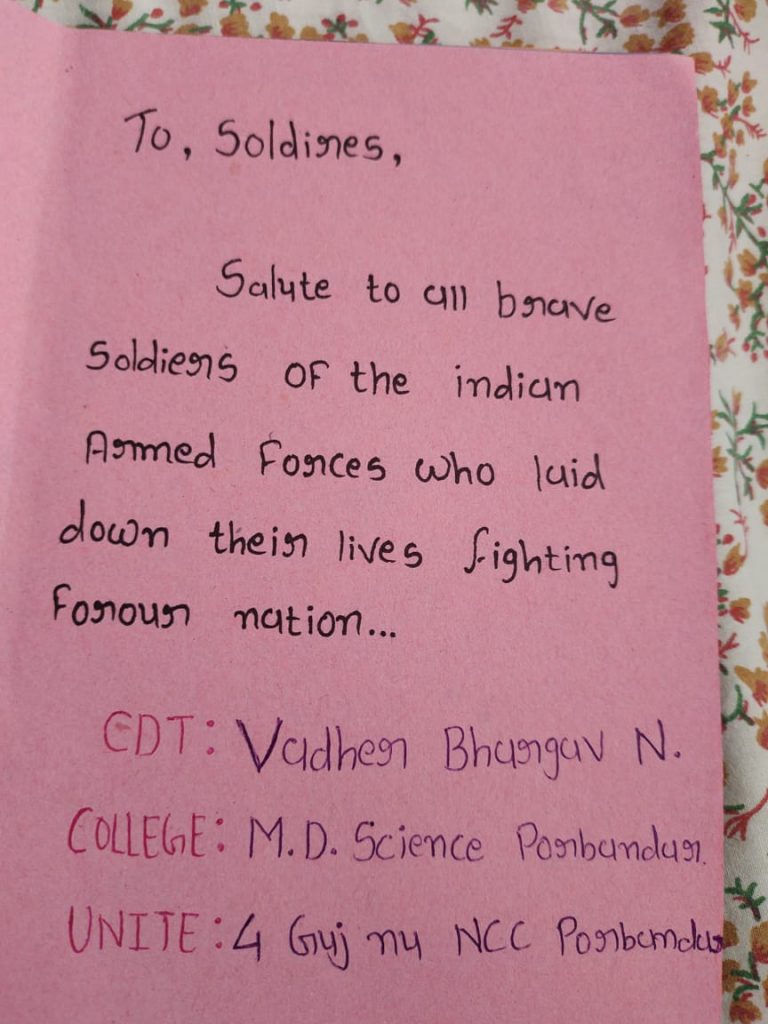 To, Soldires,
Salute to all brave
Soldiers of the indian
Armed Forces who laid
down their lives fighting
Forour nation...
CDT: Vadher Bhargav N.
COLLEGE: M.D. Science Porbandar.
UNITE: 4 Guj nu NCC Porbandar